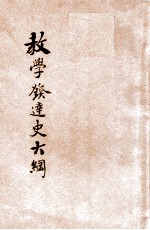 教學發達史大綱